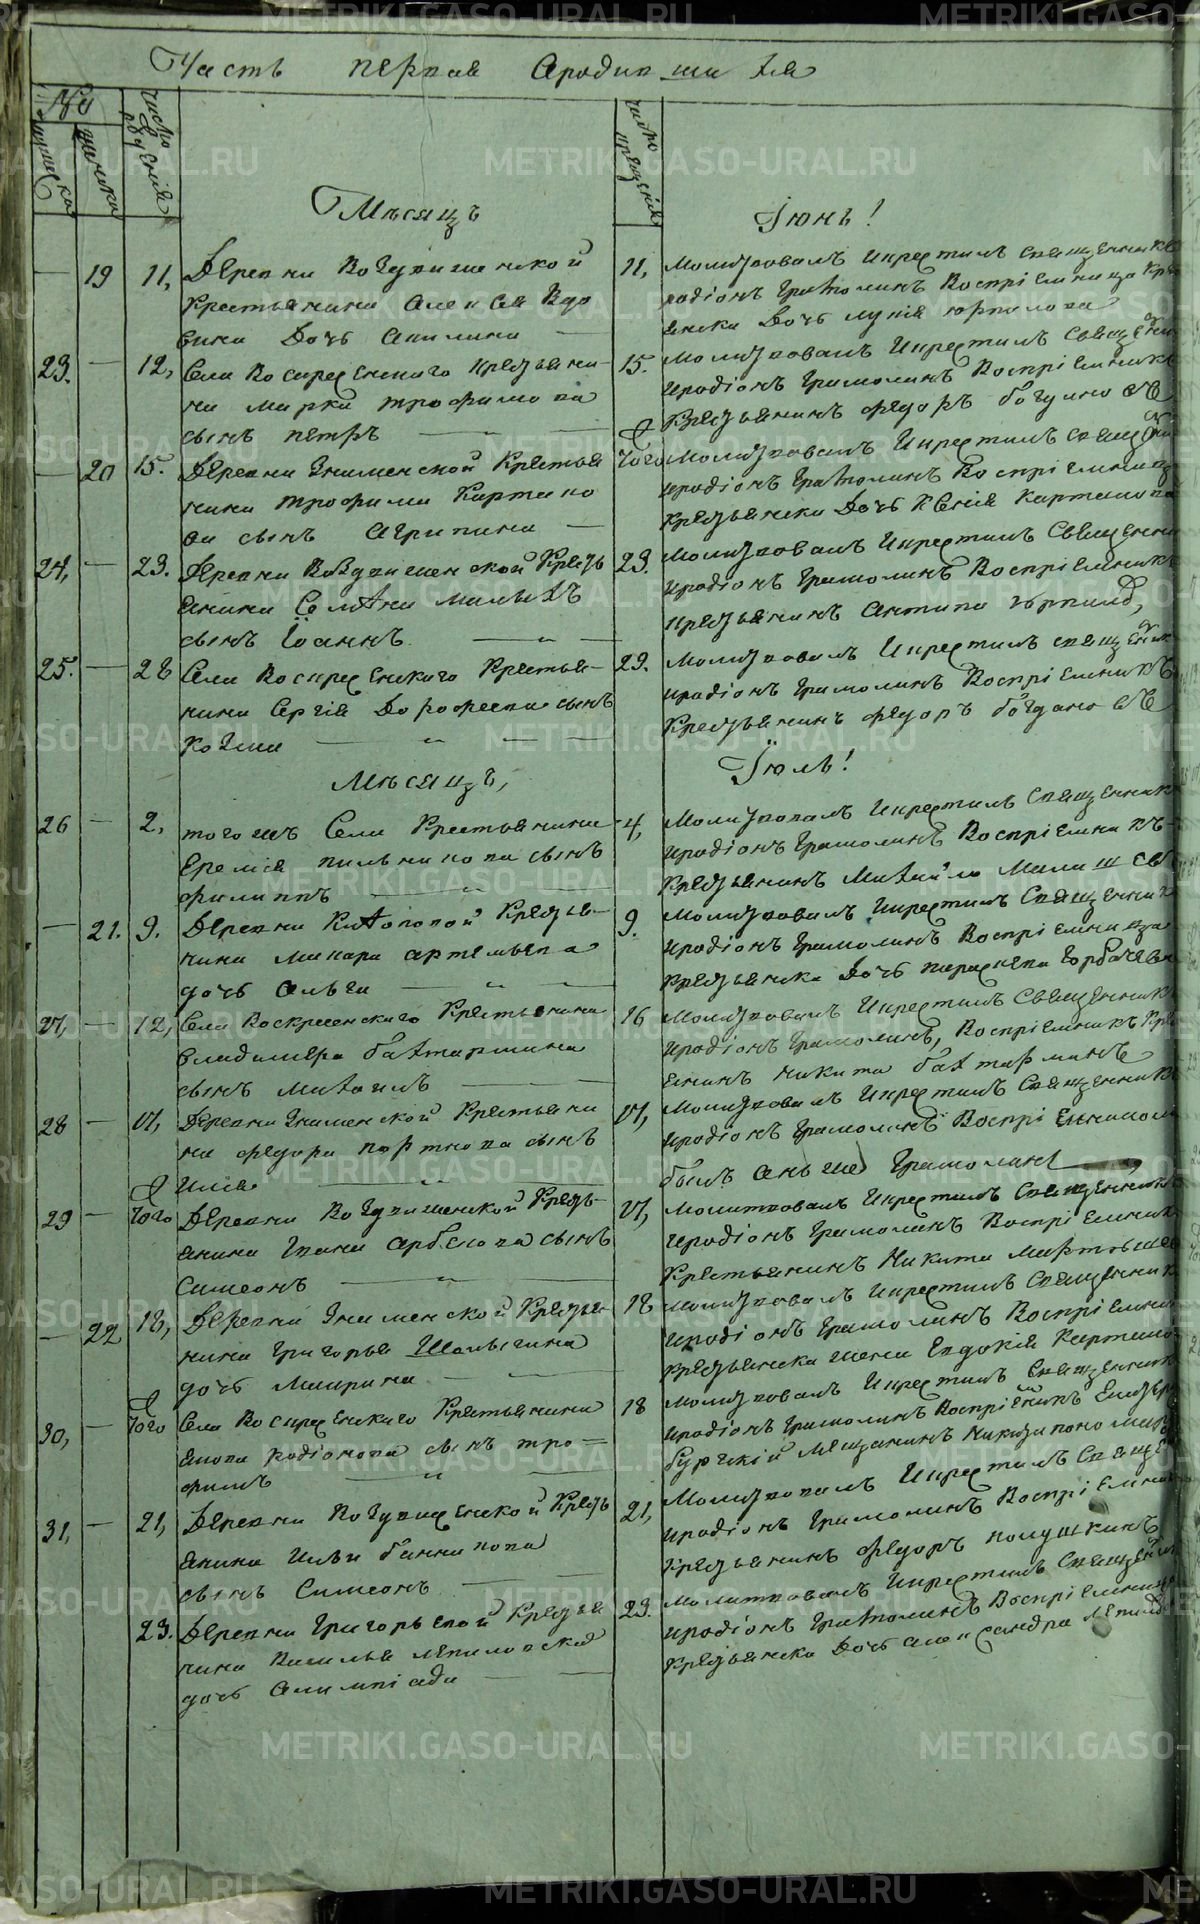 Часть первая ородившихся
№
мужеска
женска
число рожденія
число крещенія
Мѣсяцъ Іюнь!
19 11, Деревни Воздвиженской
крестьянина Алексея Вдо
вина дочь Акилина
11, Молитвовалъ икрестилъ священникъ
родіонъ Грамолинъ Воспріемница кре
янска дочь
23. 12, Села Воскресенскаго крестьяни-
на Марка трофимова
сынъ петръ
15. Молитвовалъ икрестилъ Священ
иродіонъ Грамолинъ Воспріемникъ
крестьянинъ федоръ богдановъ
20 15. Деревни Знаменской Крестья
нина трофима Картаво
ва сынъ Агрипина
Того Молитвовалъ икрестилъ свящ
иродіонъ Грамолинъ Воспріемница
крестьянска дочь
24, 23. Деревни Воздвиженской Кресть
янина Селяна Малыхъ
сынъ Іоаннъ
23. Молитвовалъ икрестилъ Священни
иродіонъ Грамолинъ Воспріемникъ
крестьянинъ Антипа
25. 28 Села Воскресенскаго Крестья-
нина Сергія Дорофеева сынъ
Козма
29. Молитвовалъ икрестилъ священ
иродіонъ Грамолинъ Воспріемникъ
Крестьянинъ федоръ богдановъ
Мѣсяцъ, Іюль!
26 2, тогожъ Села Крестьянина
Еремія пильникова сынъ
филиппъ
4, Молитвовалъ икрестилъ Священникъ
иродіонъ Грамолинъ Воспріемникъ-
крестьянинъ Михайло
21. 9. Деревни Крестья-
нина Макара артемьева
дочь Ольга
9. Молитвовалъ икрестилъ Священник
иродіонъ Грамолинъ Воспріемница
крестьянска дочь параскева Горбачева
27, 12, Села Воскресенскаго Крестьянина
Владимера бахтармина
сынъ Михаилъ
16 Молитвовалъ икрестилъ Священник
иродіонъ Грамолинъ, Воспріемникъ Кре
янинъ Никита бахтарминъ
28 17, Деревни Знаменской Крестьяни
на федора портнова сынъ
Илія
17, Молитвовалъ икрестилъ Священник
иродіонъ Грамолинъ Воспріемникомъ
былъ онъже Грамолинъ
29 Того Деревни Воздвиженской Кресть-
янина Ивана арбелова сынъ
Симеонъ
17, Молитвовалъ икрестилъ Священник
иродіонъ Грамолинъ Воспріемник
Крестьянинъ Никита
22 18, Деревни Знаменской Крестья-
нина Григорья Шалыгина
дочь Маирина
18 Молитвовалъ икрестилъ Священник
иродіонъ Грамолинъ Воспріемни
крестьянска жена Евдокія
30, Того Села Воскресенскаго Крестьянина
якова родіонова сынъ тро=
фимъ
18 Молитвовалъ икрестилъ Священник
иродіонъ Грамолинъ Воспріемникъ
бургскій мещанинъ
31, 21, Деревни Воздвиженской Кресть
янина Ильи банникова
сынъ Симеонъ
21, Молитвовалъ икрестилъ Священ
иродіонъ Грамолинъ Воспріемник
крестьянинъ федоръ полушкинъ
23. Деревни Григорьевой Крестья
нина Василья
дочь Олимпіада
23. Молитвовалъ икрестилъ Священ
иродіонъ Грамолинъ Воспріемница
крестьянска дочь александра
METRIKI.GASO-URAL.RU